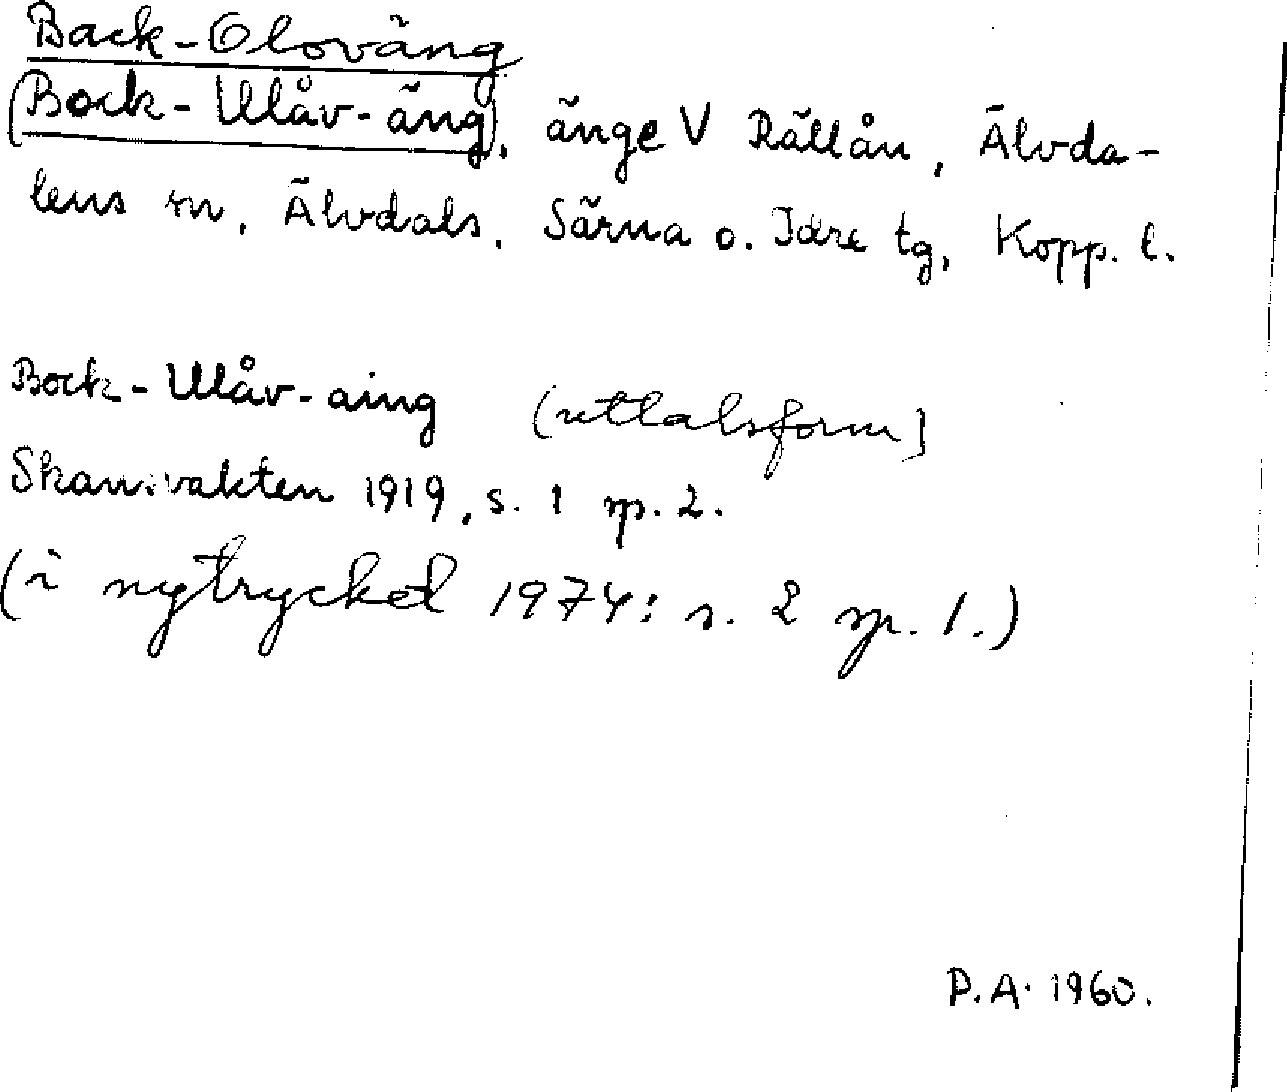 Back-Oloväng
(Bock-Ulåv-äng), änge V Rällån, Älvda-
lens sn, Älvdals, Särna o. Idre tg, Kopp. l.
Bock-Ulåv-aing (uttalsform)
Skansvakten 1919, s. 1 sp. 2.
(i nytrycket 1974: s. 2 sp. 1.)
P.A. 1960.